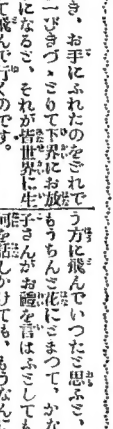 き、お手にふれたのをどれで
一ぴきづゝとりて下界にお放
になると、それが皆世界に生
て飛んで行くのです。
う方に飛んでいつたと思ふと、
もうちんと花にとまつて、かな
子さんがお禮を言はふとしても
何を話しかけても、もうなんに